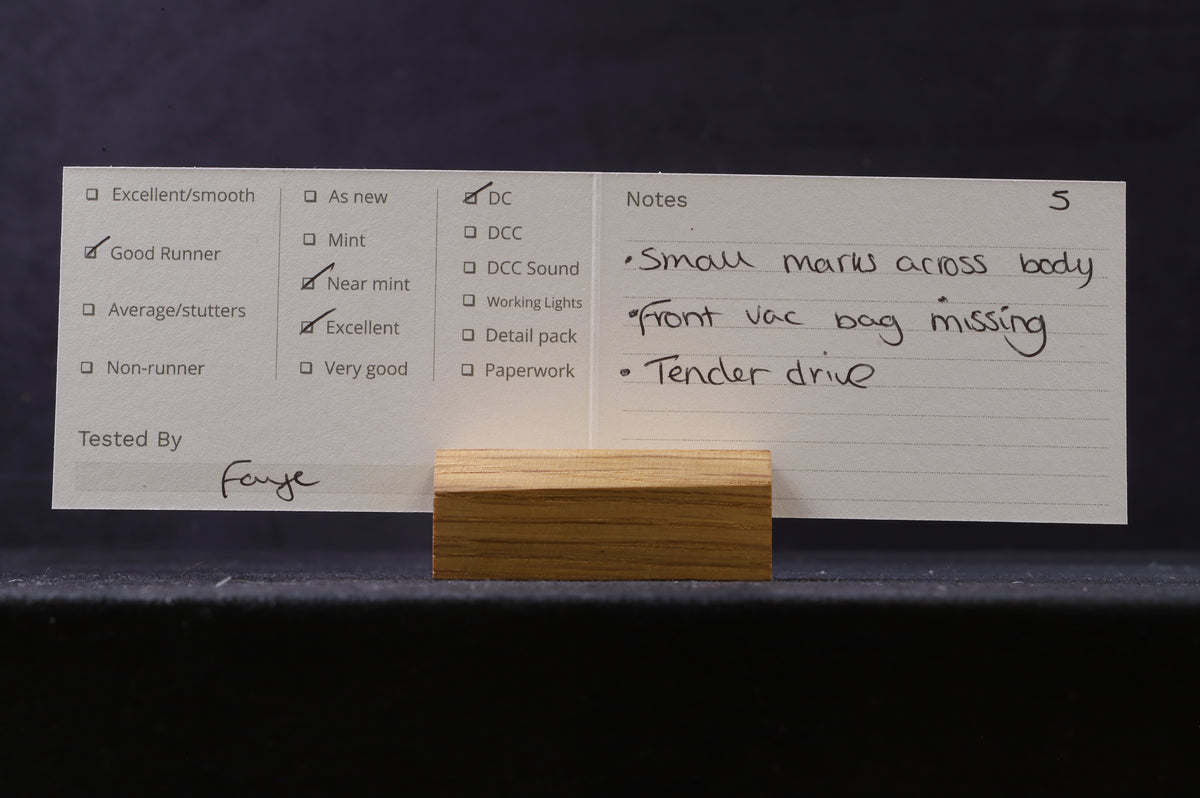 ☐ Excellent/smooth
☑ Good Runner
☐ Average/stutters
☐ Non-runner
☐ As new
☐ Mint
☑ Near mint
☑ Excellent
☐ Very good
☑ DC
☐ DCC
☐ DCC Sound
☐ Working Lights
☐ Detail pack
☐ Paperwork
Tested By
Faye
Notes 5
• Small marks across body
• front vac bag missing
• Tender drive